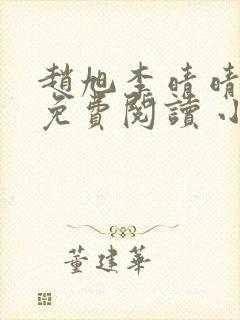 趙旭李晴晴
免費閱讀小
董建華